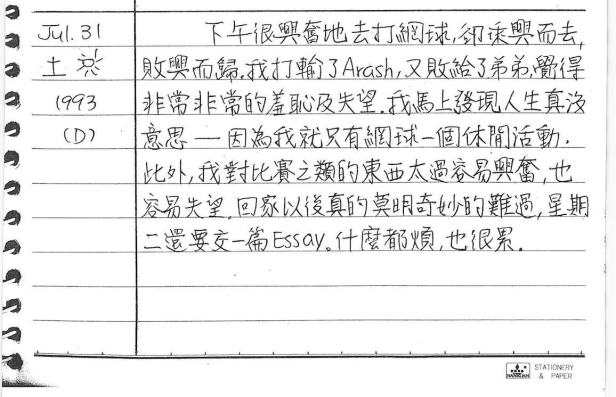 Jul. 31 下午很興奮地去打網球,卻乘興而去,
土 敗興而歸.我打輸了Arash,又敗給了弟弟,覺得
1993 非常非常的羞恥及失望.我馬上發現人生真沒
(D) 意思——因為我就只有網球一個休閒活動.
此外,我對比賽之類的東西太過容易興奮,也
容易失望.回家以後真的莫明奇妙的難過,星期
二還要交一篇Essay。什麼都煩,也很累.
STATIONERY
& PAPER